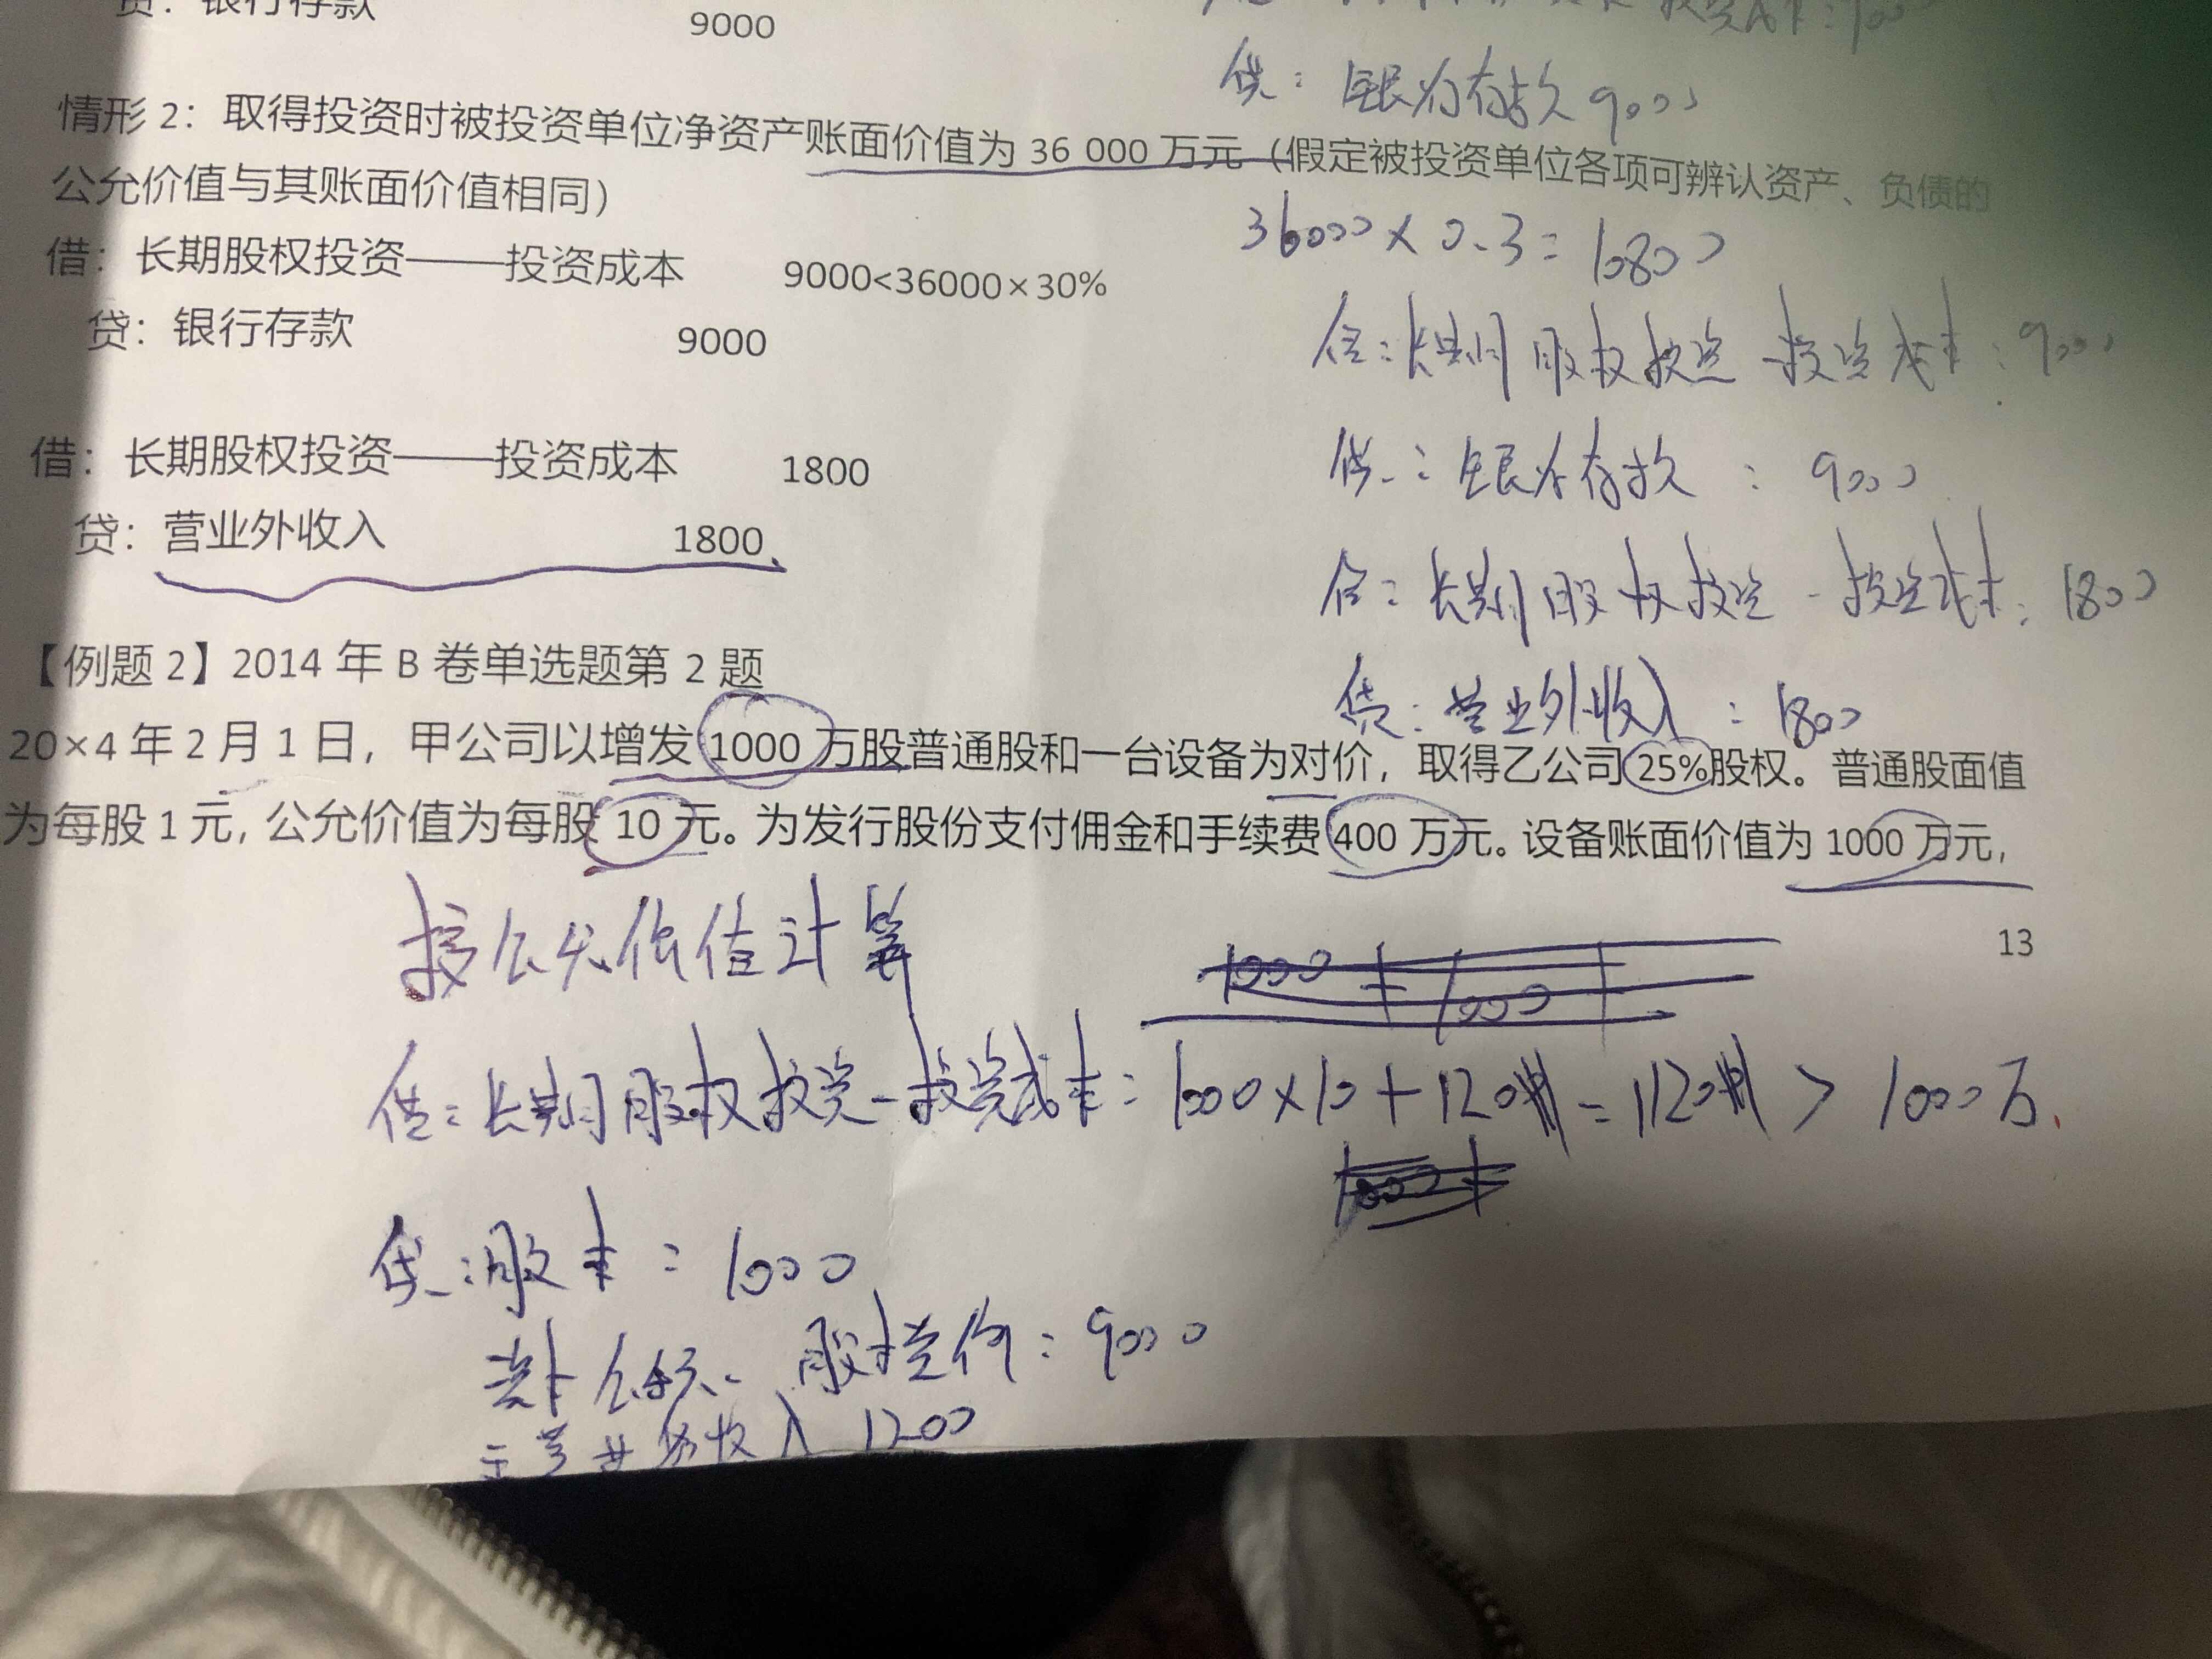 贷：银行存款 9000
贷：银行存款 9000
情形 2：取得投资时被投资单位净资产账面价值为 36 000 万元（假定被投资单位各项可辨认资产、负债的
公允价值与其账面价值相同）
36000 × 0.3 = 10800
借：长期股权投资——投资成本 9000<36000×30%
贷：银行存款 9000
借：长期股权投资 - 投资成本：9000
贷：银行存款：9000
借：长期股权投资——投资成本 1800
贷：营业外收入 1800
借：长期股权投资 - 投资成本：1800
贷：营业外收入：1800
【例题 2】2014 年 B 卷单选题第 2 题
20×4 年 2 月 1 日，甲公司以增发 1000 万股普通股和一台设备为对价，取得乙公司 25%股权。普通股面值
为每股 1 元，公允价值为每股 10 元。为发行股份支付佣金和手续费 400 万元。设备账面价值为 1000 万元，
13
按公允价值计算
借：长期股权投资 - 投资成本：1000×10+1200=11200 > 1000万
贷：股本：1000
资本公积 - 股本溢价：9000
主营业务收入 1200